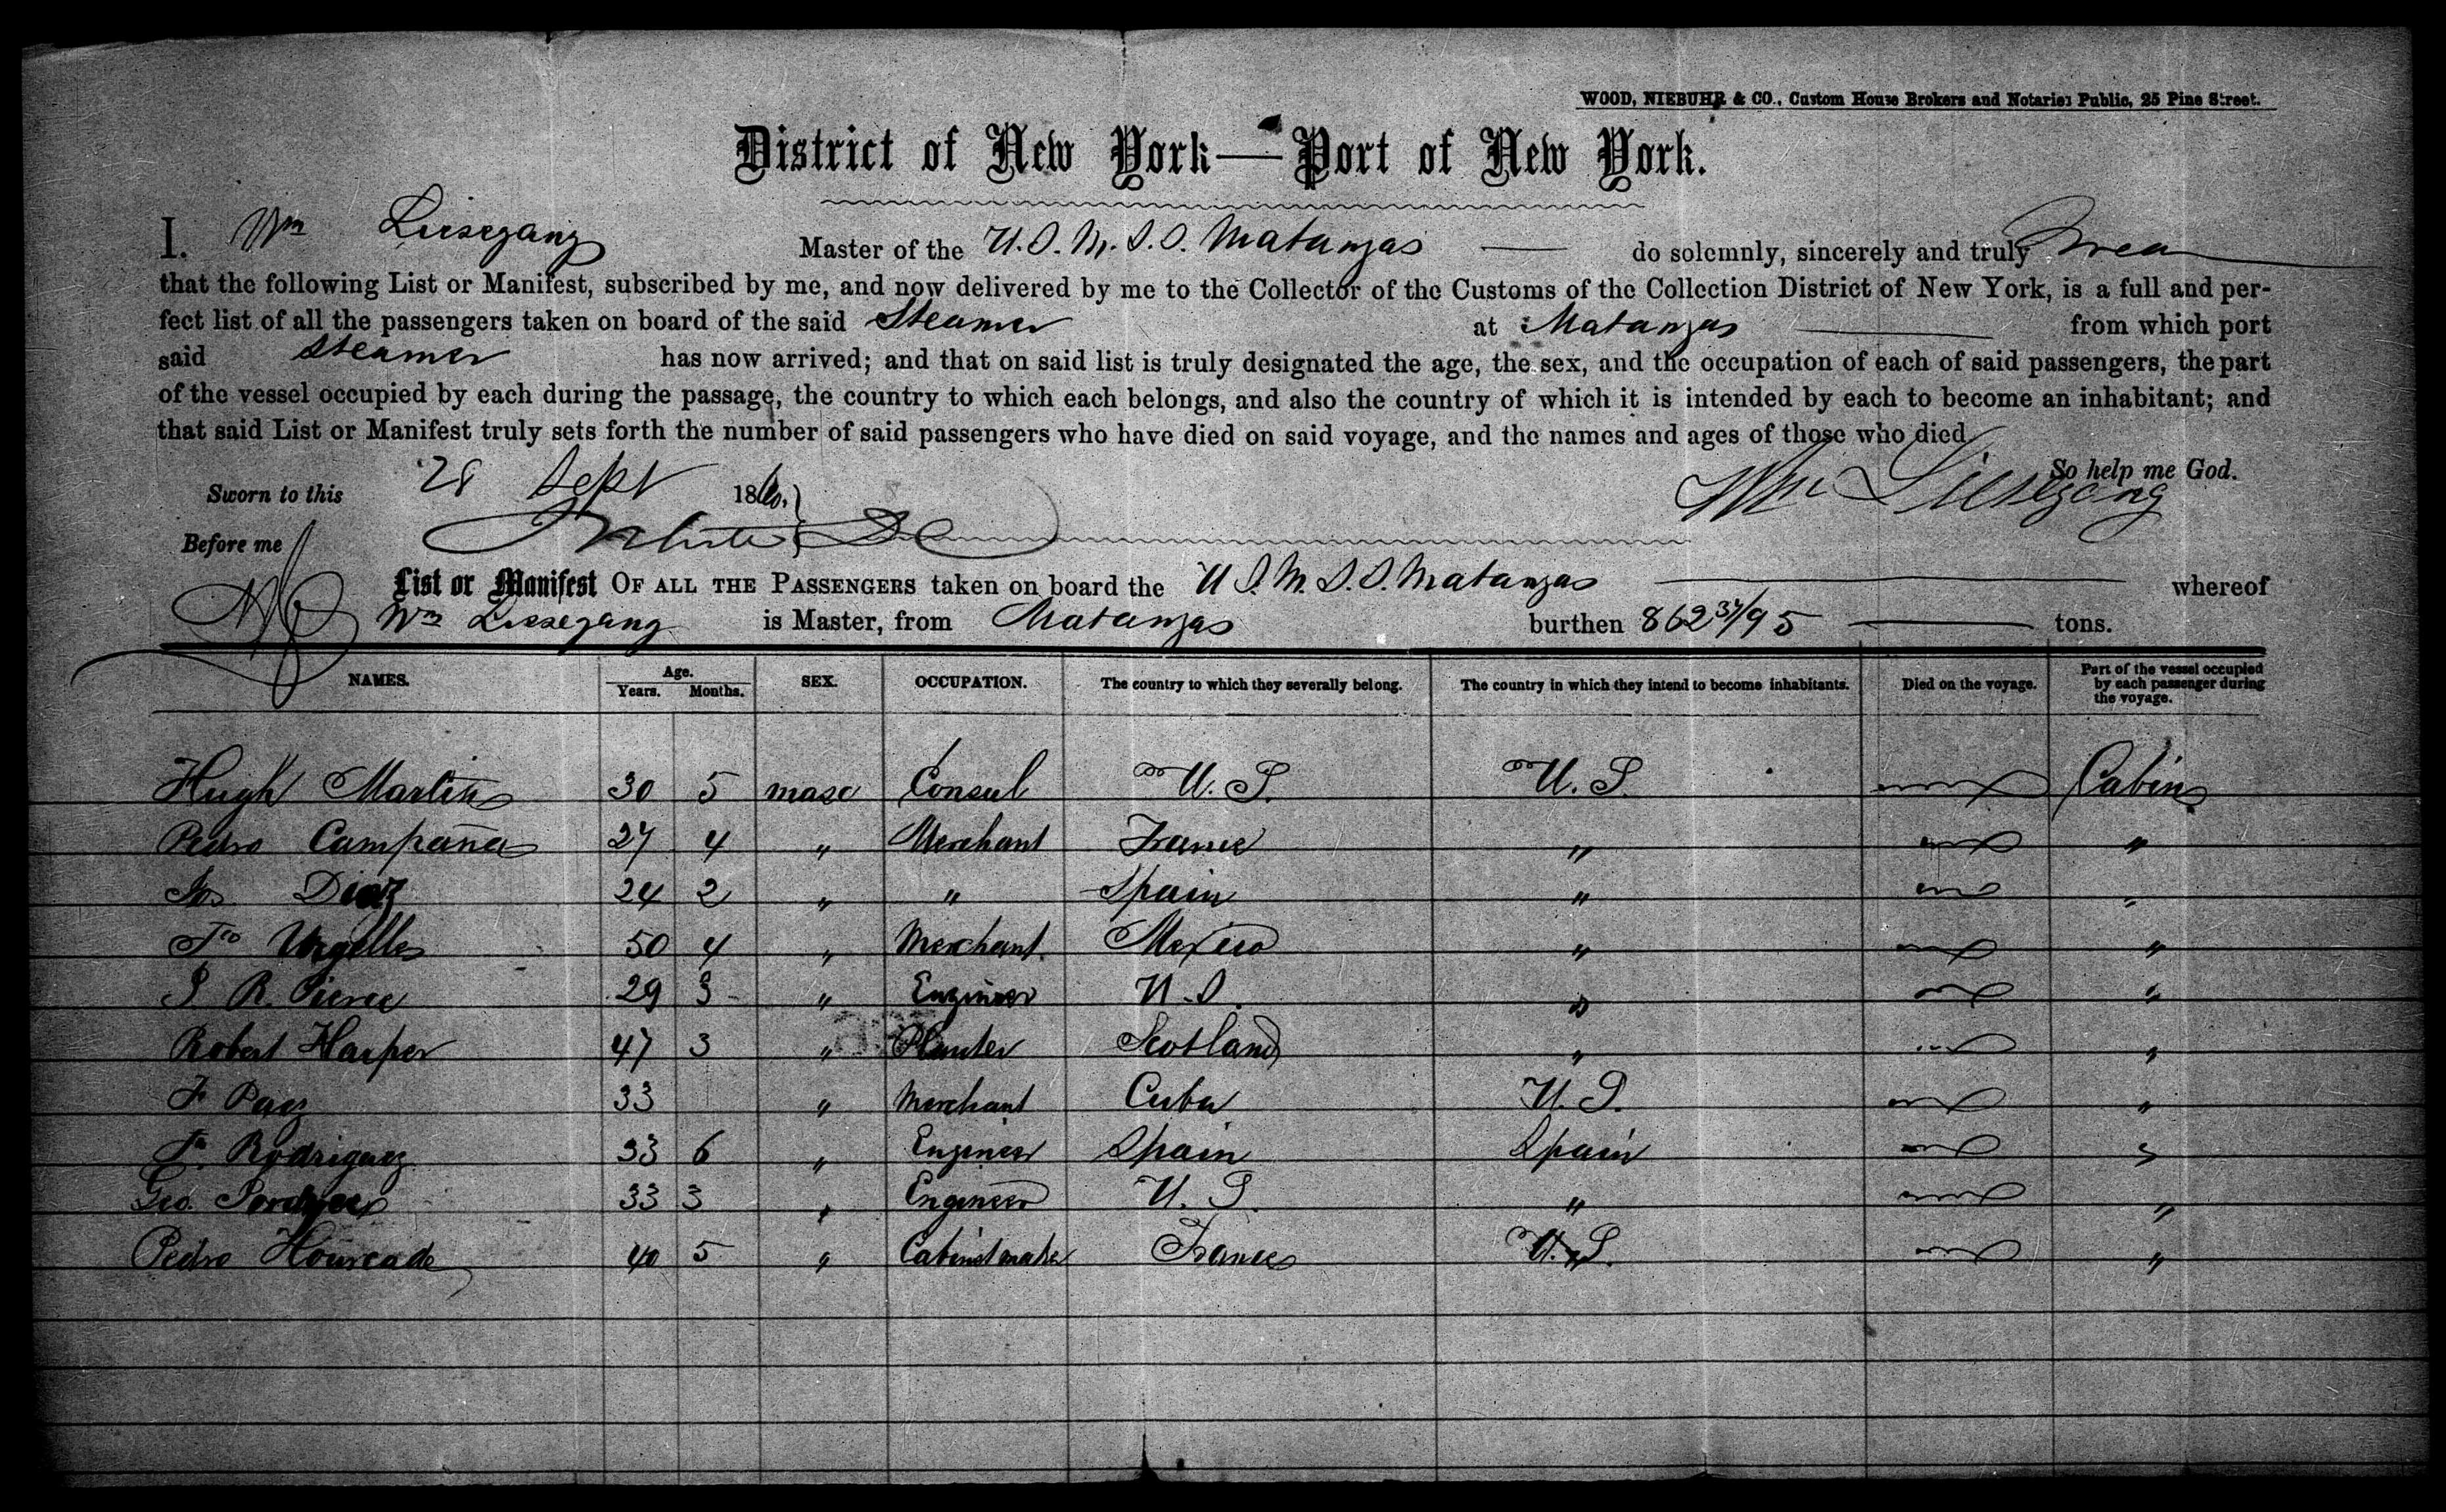 WOOD, NIEBUHR & CO., Custom House Brokers and Notaries Public, 25 Pine Street.
District of New York—Port of New York.
I. Wm Liesegang Master of the U.S.M.S.S. Matanzas do solemnly, sincerely and truly Swear
that the following List or Manifest, subscribed by me, and now delivered by me to the Collector of the Customs of the Collection District of New York, is a full and per-
fect list of all the passengers taken on board of the said Steamer at Matanzas from which port
said Steamer has now arrived; and that on said list is truly designated the age, the sex, and the occupation of each of said passengers, the part
of the vessel occupied by each during the passage, the country to which each belongs, and also the country of which it is intended by each to become an inhabitant; and
that said List or Manifest truly sets forth the number of said passengers who have died on said voyage, and the names and ages of those who died.
So help me God.
Sworn to this 28 Sept 186 Wm Liesegang
Before me
List or Manifest OF ALL THE PASSENGERS taken on board the U.S.M.S.S. Matanzas whereof
Wm Liesegang is Master, from Matanzas burthen 862 37/95 tons.
NAMES. Age. Years. Months. SEX. OCCUPATION. The country to which they severally belong. The country in which they intend to become inhabitants. Died on the voyage. Part of the vessel occupied by each passenger during the voyage.
Hugh Martin 30 5 masc Consul U.S. U.S. Cabin
Pedro Campaña 27 4 " Merchant France " "
Diaz 24 2 " " Spain " "
Fco Urgelles 50 4 " Merchant. Mexico " "
S. R. Pierce 29 3 " Engineer U.S. " "
Robert Harper 47 3 " Planter Scotland " "
F Paez 33 " Merchant Cuba U.S. "
Rodriguez 33 6 " Engineer Spain Spain "
Geo. 33 3 " Engineer U.S. " "
Pedro Hourcade 40 5 " Cabinetmaker France U.S. "